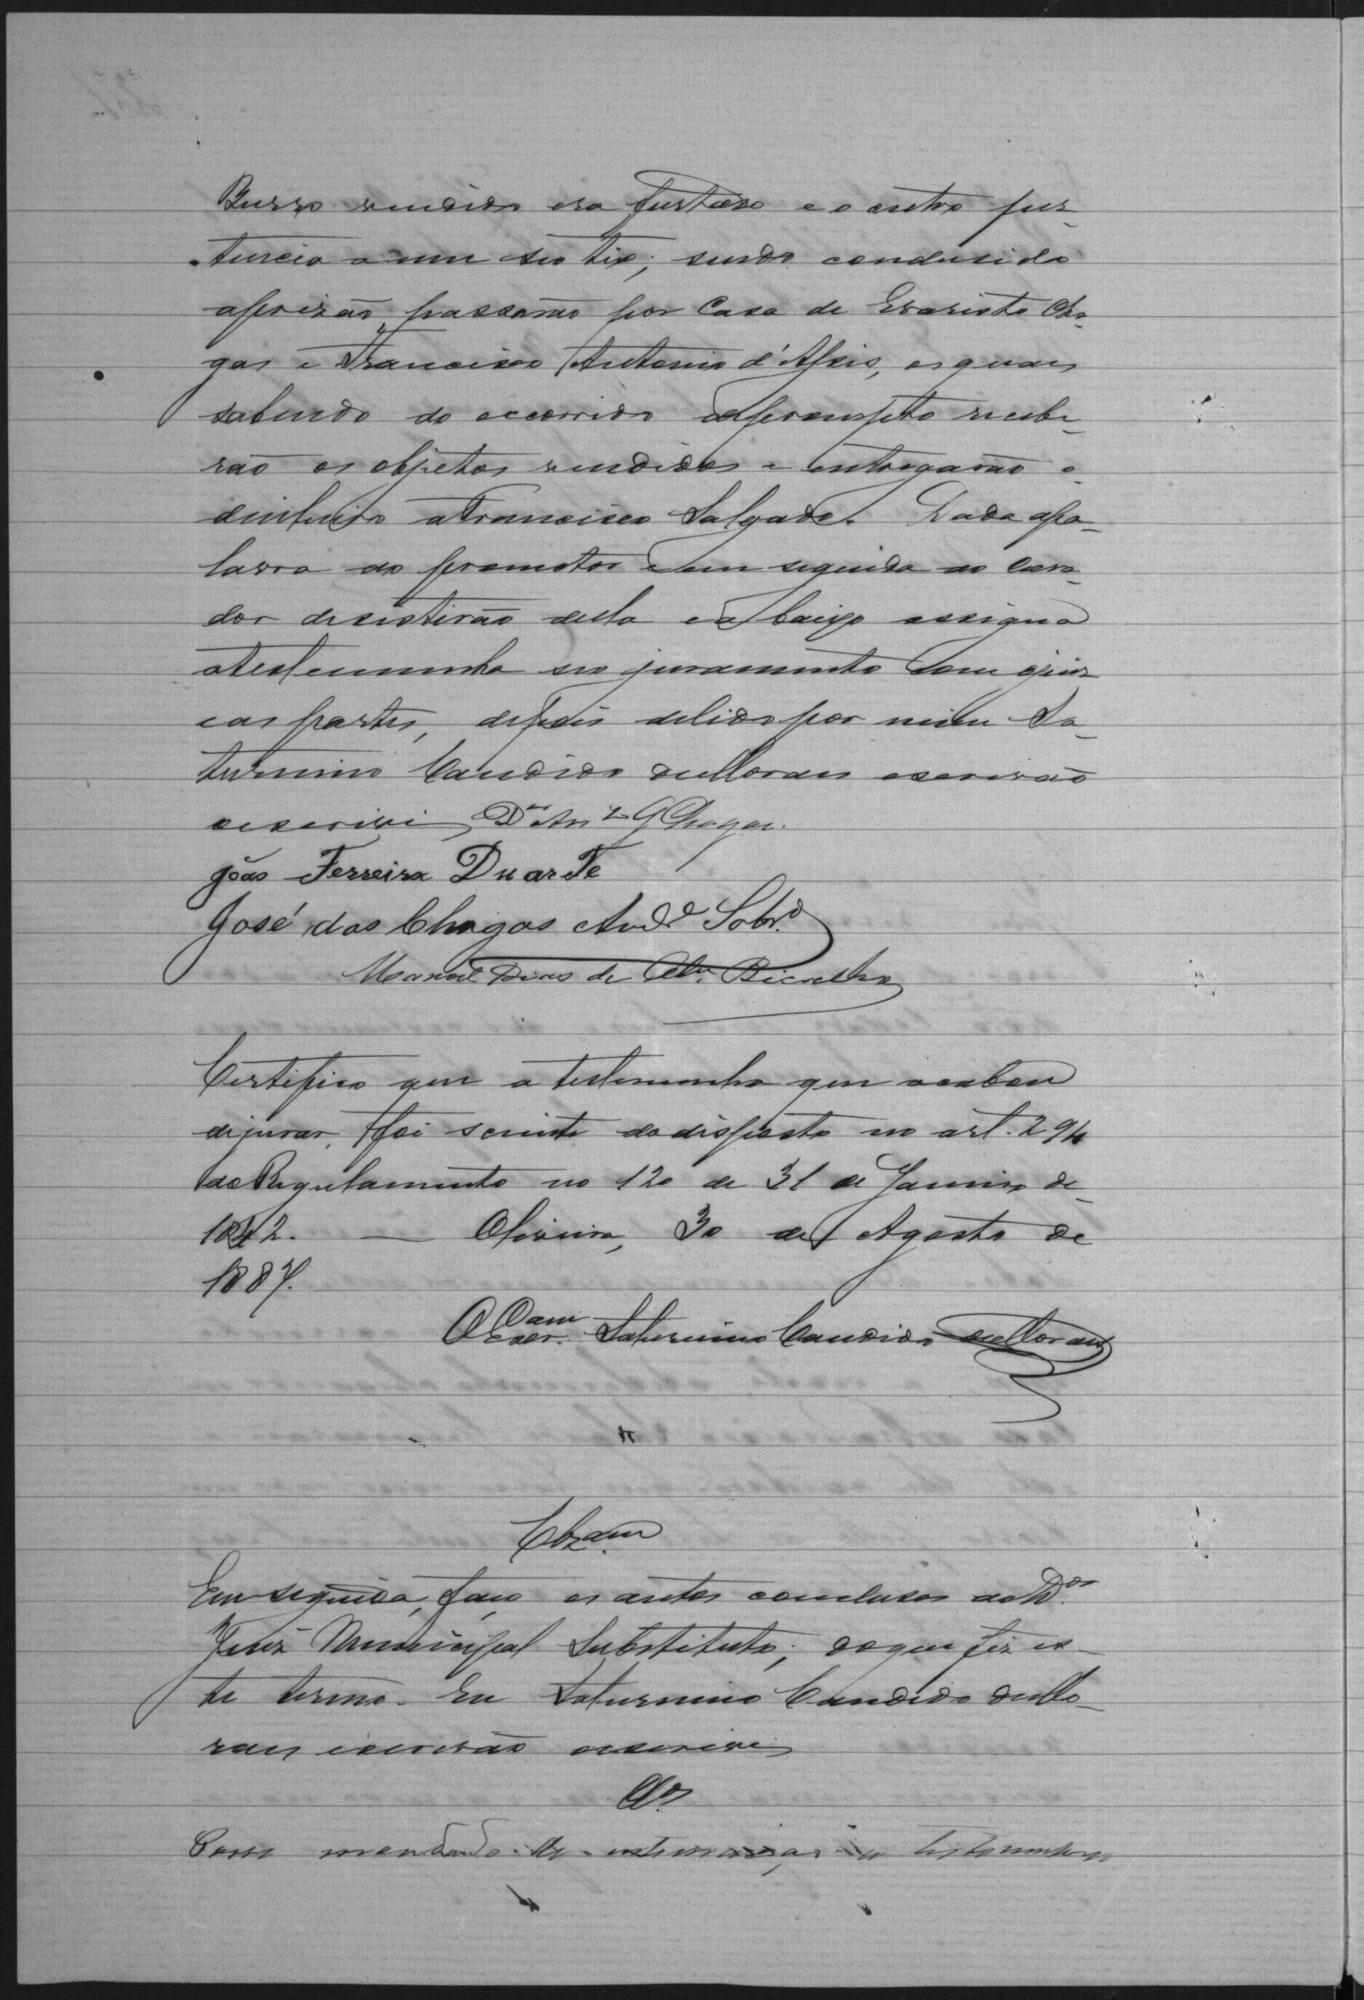 Burro vendido era furtado e o outro per-
tencia a um seo tio; sendo condusido
aprizão passarão por Casa de Evaristo Cha-
gas e Francisco Antonio d'Assis, os quaes
sabendo do occorrido deprompto recebe-
rão os objetos vendidos e entregarão o
dinheiro a Francisco Salgado. Dada apa-
lavra ao promotor e em seguida ao Cura-
dor desistirão della e a baixo assigna
atestemunha seo juramento com o juiz
e as partes, depois de lido por mim Sa-
turnino Candido de Moraes escrivão
oescrivi
João Ferreira Duarte
José das Chagas And.e Sobr.o
Manoel Dias de Olv.ra Bicalho
Certifico que a testemunha que acabou
dejurar, foi sciente do disposto no art. 294
do Regulamento no 120 de 31 de Janeiro de
1842. — Oliveira, 30 de Agosto de
1887.
O Escr. Saturnino Candido de Moraes
Clz.am
Em seguida, faço os autos conclusos ao D.or
Juiz Municipal Substituto; do que fiz es-
te termo. Eu Saturnino Candido de Mo-
raes escrivão oescrivi
Cl.os
mandado de testemunhas